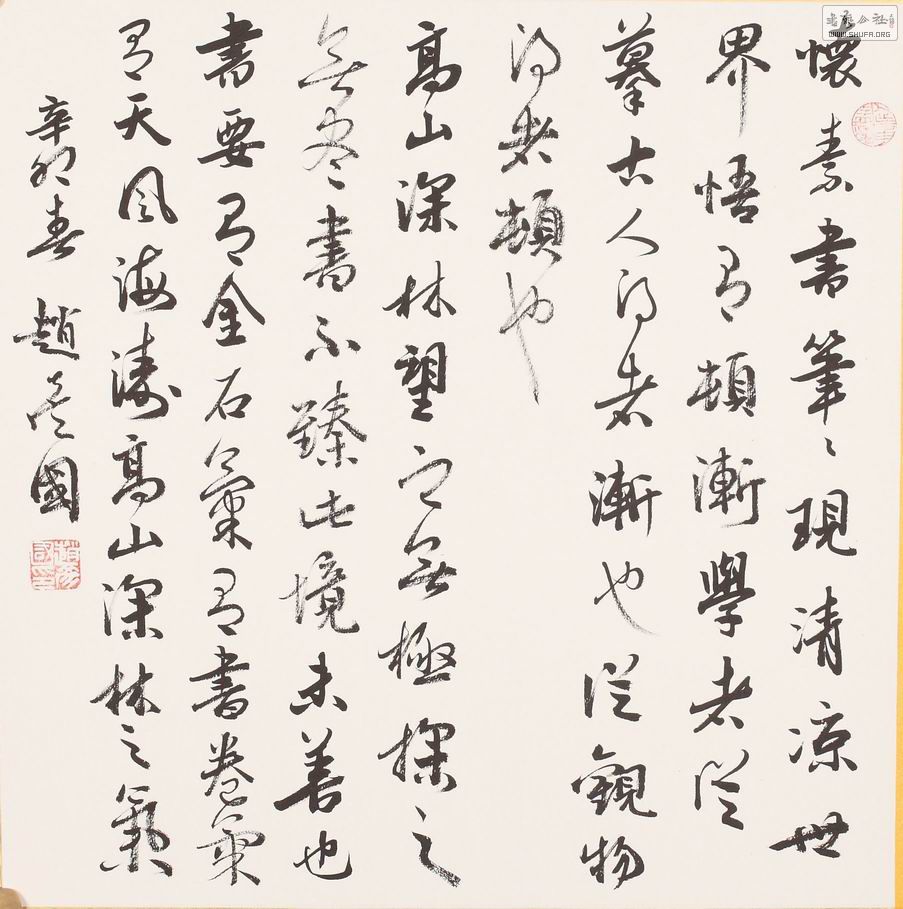 懷素書筆々現清涼世
界悟有頓漸學者從
摹古人得者漸也從觀物
得者頓也
高山深林望之無極探之
無盡書不臻此境未善也
書要有金石氣有書卷氣
有天風海濤高山深林之氣
辛卯春 趙 國
WWW.SHUFA.ORG